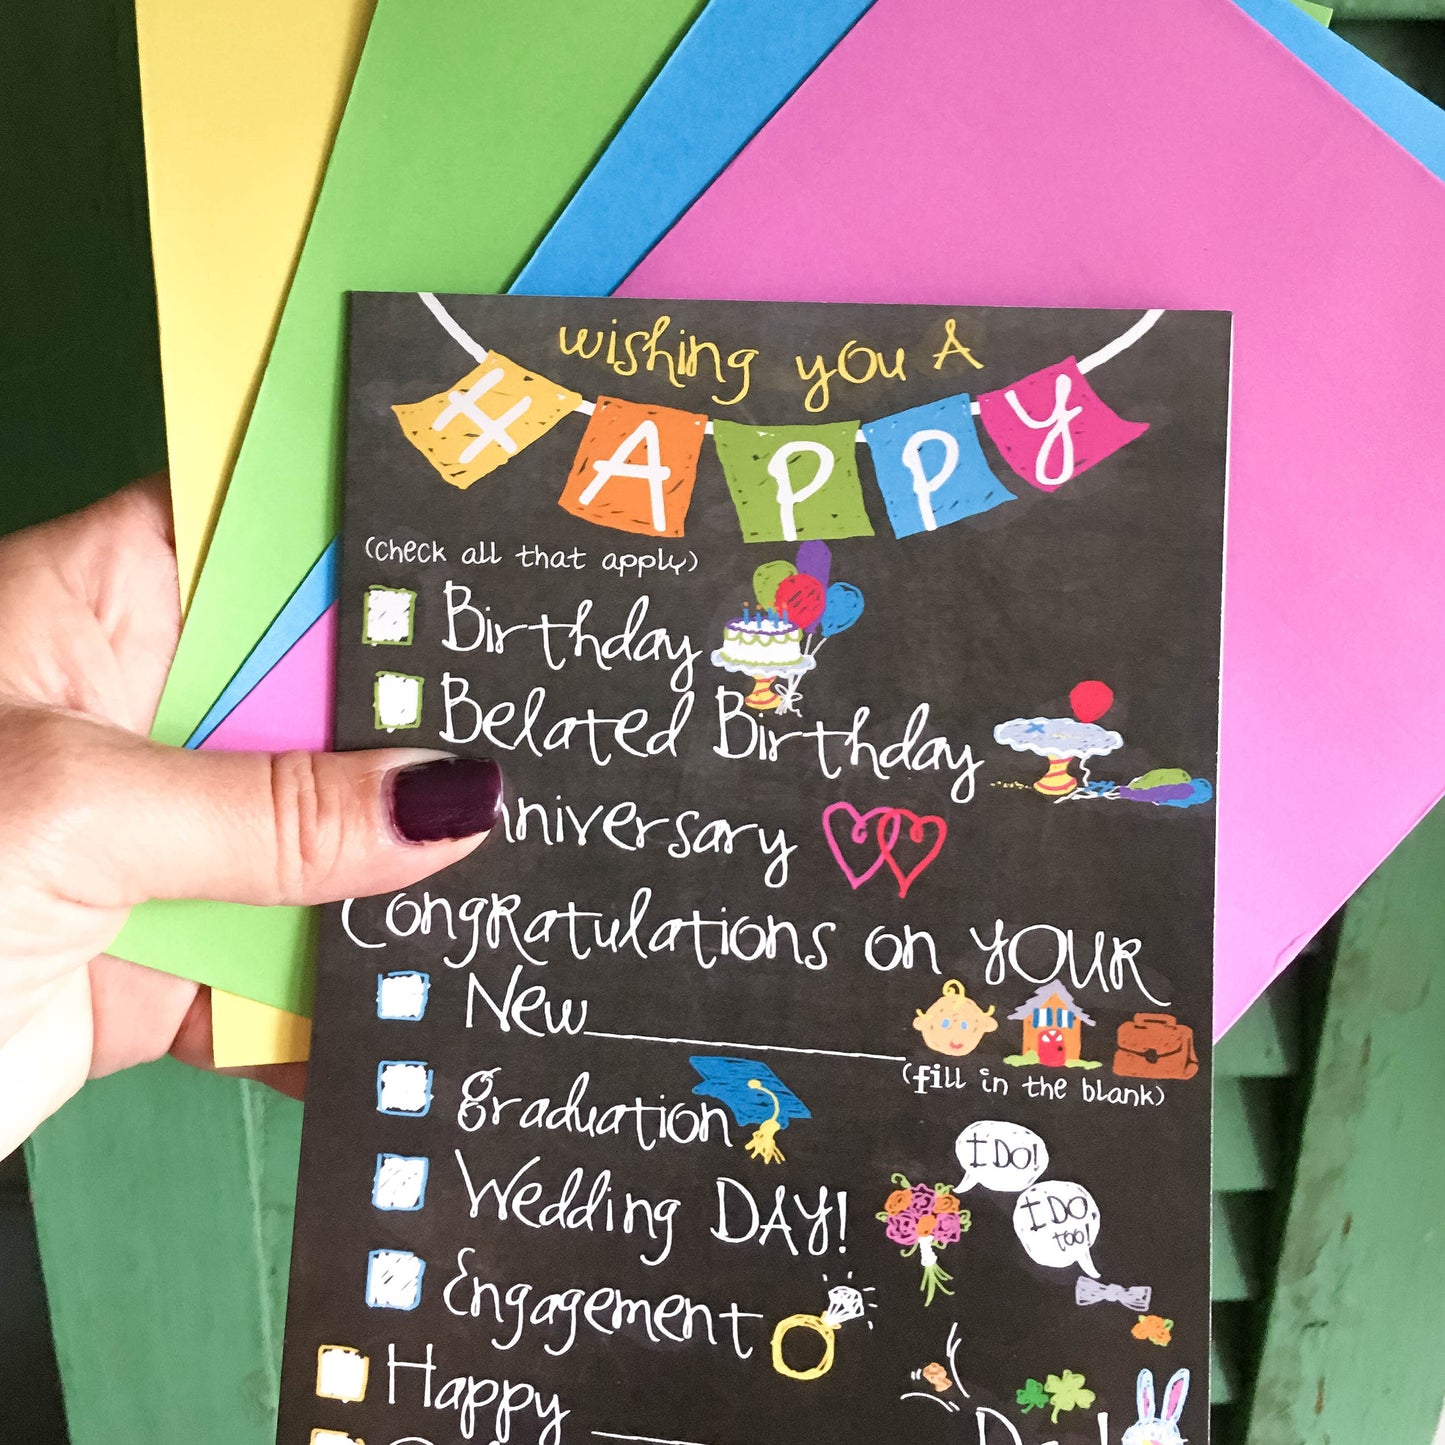 wishing you A
HAPPY
(check all that apply)
Birthday
Belated Birthday
Congratulations on YOUR
New
(fill in the blank)
graduation
Wedding DAY!
I DO!
I DO,
too!
Engagement
Happy